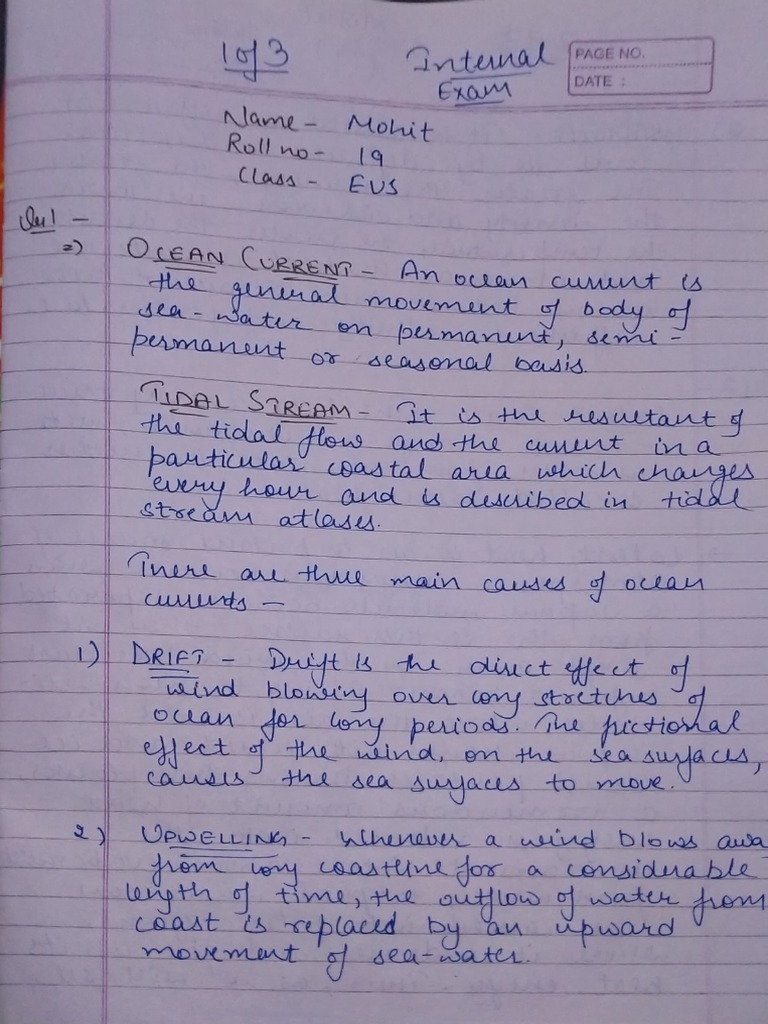 1 of 3
Internal Exam
PAGE NO.
DATE :
Name - Mohit
Roll no - 19
Class - EVS
Qu1 -
=) OCEAN CURRENT - An ocean current is
the general movement of body of
sea-water on permanent, semi-
permanent or seasonal basis.
TIDAL STREAM - It is the resultant of
the tidal flow and the current in a
particular coastal area which changes
every hour and is described in tidal
stream atlases.
There are three main causes of ocean
currents -
1) DRIFT - Drift is the direct effect of
wind blowing over long stretches of
ocean for long periods. The frictional
effect of the wind, on the sea surfaces,
causes the sea surfaces to move.
2) UPWELLING - Whenever a wind blows awa
from long coastline for a considerable
length of time, the outflow of water from
coast is replaced by an upward
movement of sea-water.